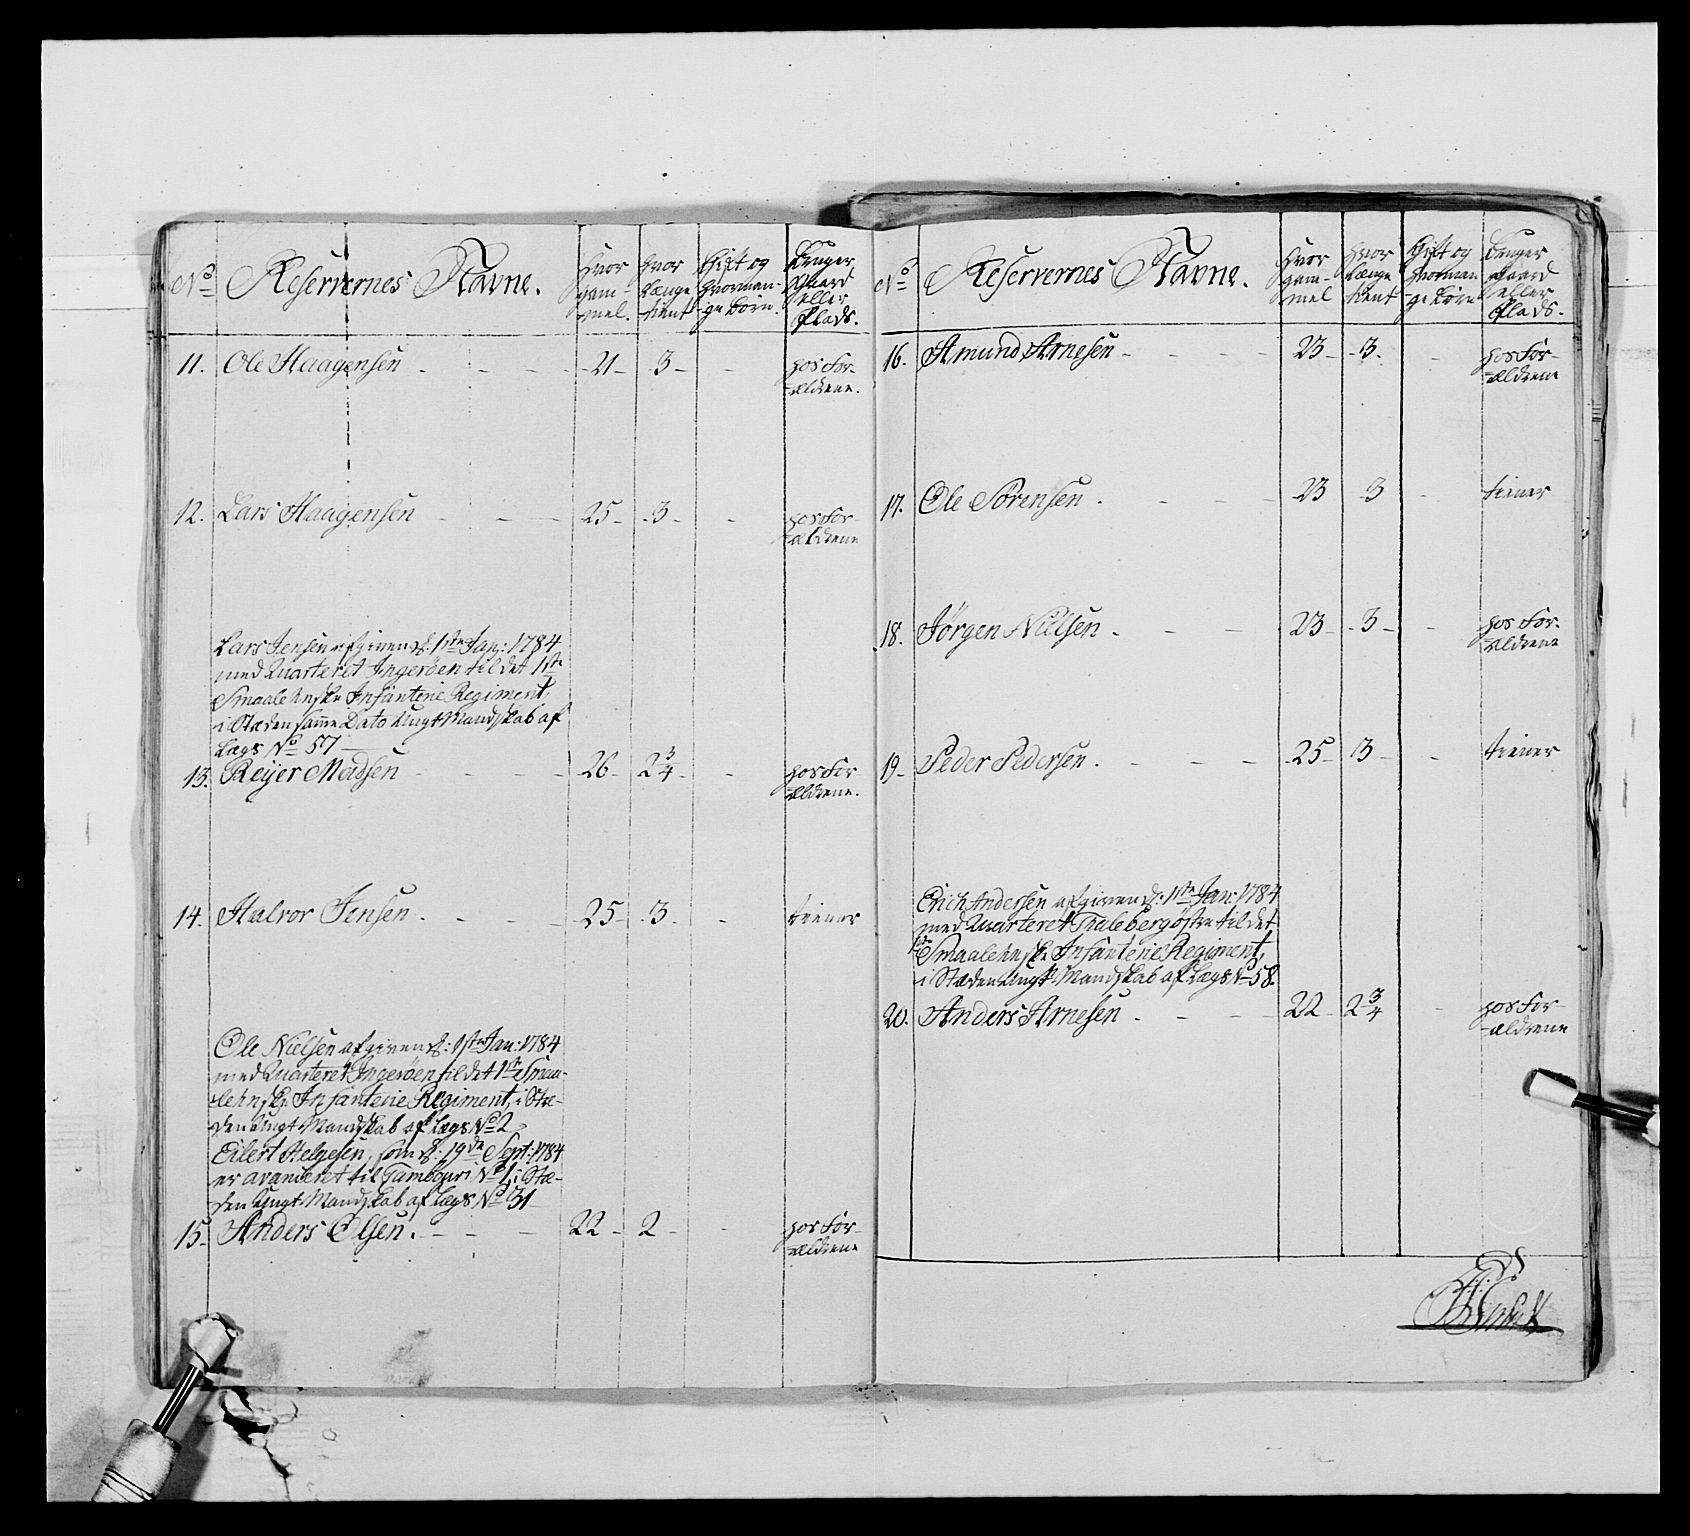 No Reservernes Navne. Hvor gam- mel. hvor længe tient Gift og hvorman- ge Børn. Bruger Gaard eller Plads.
11. Ole Haagensen - - - 21 - 3 - - hos For-
ældrene.
12. Lars Haagensen - - - 25 - 3 - - hos For-
ældrene
Lars Jensen afgiven d: 1ste Jan: 1784
med Quarteret Ingerøen til det 1ste
Smaalehnske Infanterie Regiment,
i Stæden samme Dato Ungt Mandskab af
Lægs No 57 -
13. Reijer Madsen - - - 26 - 2 3/4 - - hos For-
ældrene.
14. Halvor Jensen. - - - 25 - 3 - - tiener
Ole Nielsen afgiven d: 1ste Jan: 1784
med Quarteret Ingerøen til det 1ste Smaa-
lehnske Infanterie Regiment, i Stæ-
den Ungt Mandskab af Lægs No 2
Eilert Helgesen, som d: 19de Sept: 1784
er avanceret til Tambour No 1, i Stæ-
den Ungt Mandskab af Lægs No 31
15. Anders Olsen. - - - 22 - 2 - - hos For-
ældrene
No Reservernes Navne. Hvor gam- mel hvor længe tient Gift og hvorman- ge Børn Bruger Gaard eller Plads.
16. Amund Arnesen - - - 23 - 3 - - hos For-
ældrene
17. Ole Sørensen. - - - 23 - 3 - tiener
18. Jørgen Nielsen. - - - 23 - 3 - - hos For-
ældrene
19. Peder Pedersen. - - - 25 - 3 - - tiener
Erich Andersen afgiven d: 1ste Jan: 1784
med Quarteret Thaleberg østre til det
1ste Smaalehnske Infanterie Regiment,
i Stæden Ungt Mandskab af Lægs No 58.
20. Anders Arnesen - - - 22 - 2 3/4 - hos For-
ældrene